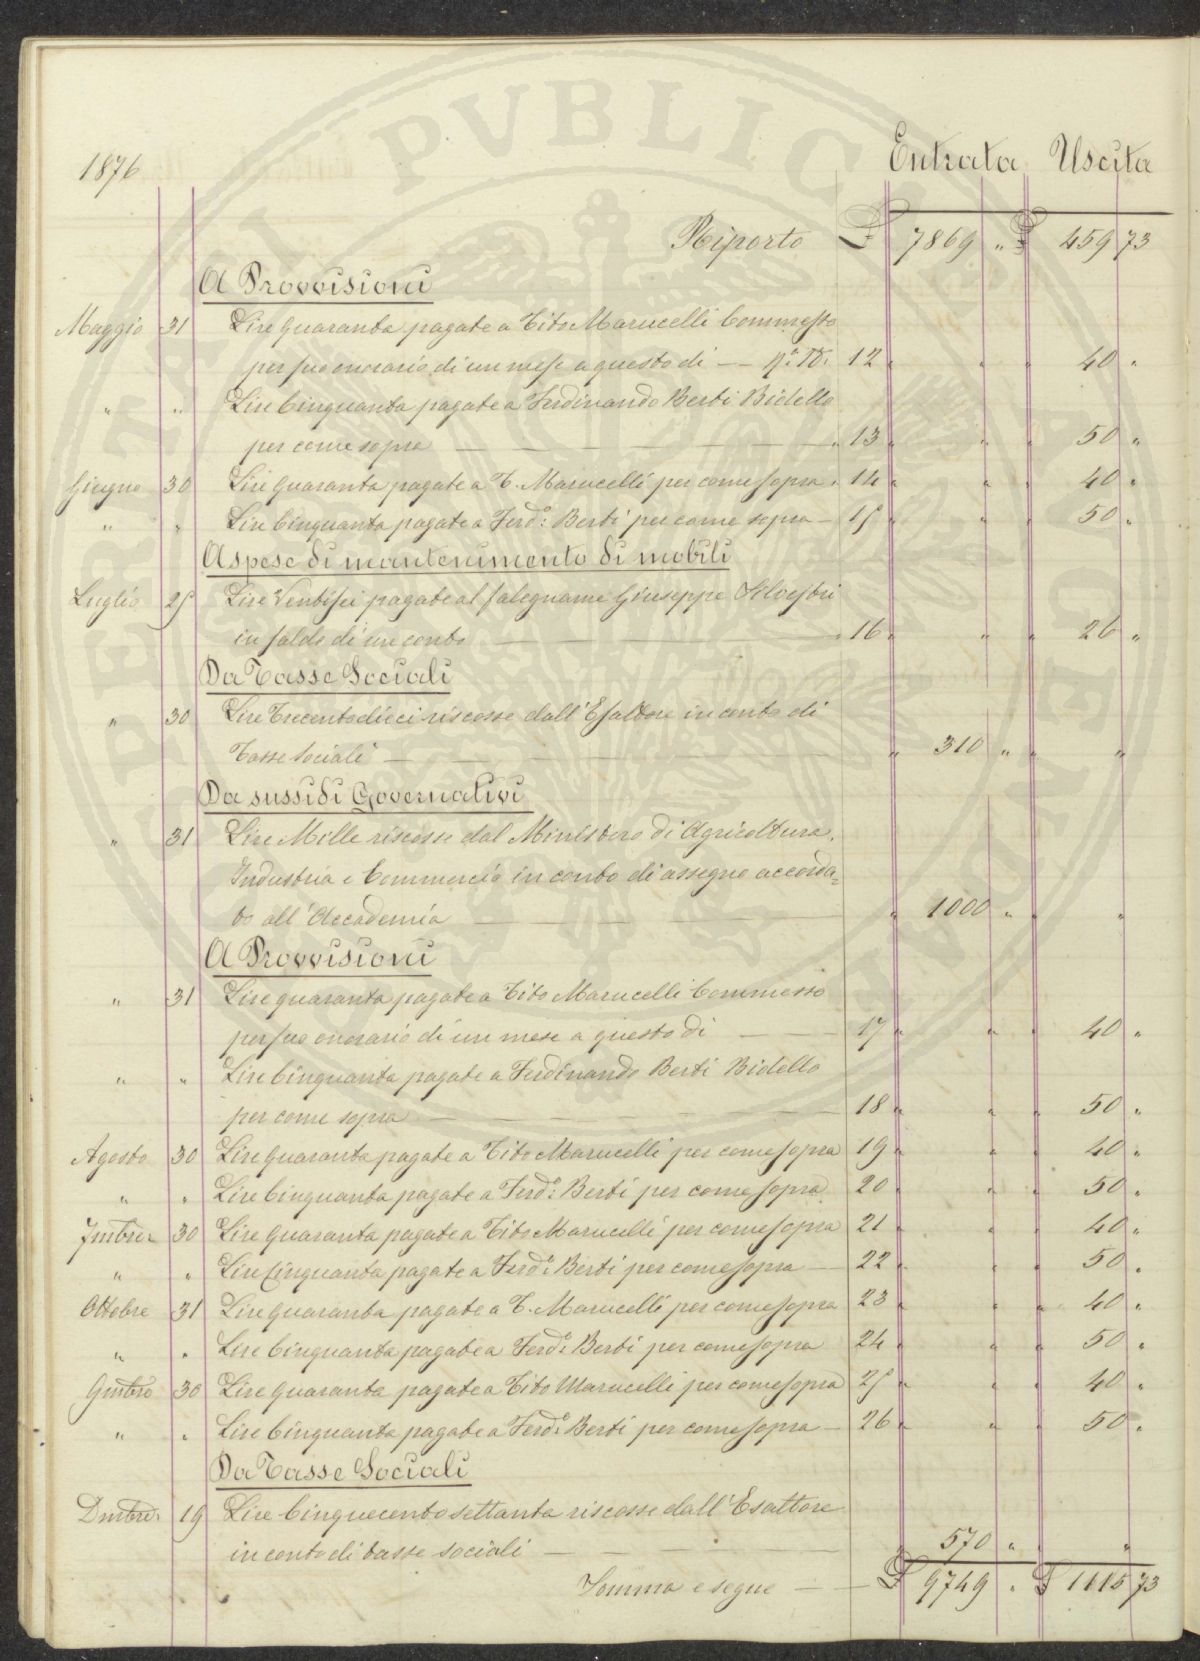 1876 Entrata Uscita
Riporto £ 7869 " £ 459 73
A Provvisioni
Maggio 31 Lire quaranta pagate a Tito Marucelli Commesso
per suo onorario di un mese a questo dì — N.° D. 12 " " " 40 "
" " Lire Cinquanta pagate a Ferdinando Berti Bidello
per come sopra — " 13 " " " 50 "
Giugno 30 Lire quaranta pagate a T. Marucelli per come sopra " 14 " " " 40 "
" " Lire Cinquanta pagate a Ferd.° Berti per come sopra — 15 " " " 50 "
A spese di mantenimento di mobili
Luglio 25 Lire Ventisei pagate al falegname Giuseppe Silvestri
in saldo di un conto — " 16 " " " 26 "
Da Tasse Sociali
" 30 Lire Trecentodieci riscosse dall'Esattore in conto di
Tasse Sociali — " 310 " " "
Da sussidi Governativi
" 31 Lire Mille riscosse dal Ministero di Agricoltura,
Industria e Commercio in conto di assegno accorda=
to all'Accademia — " 1000 " " "
A Provvisioni
" 31 Lire quaranta pagate a Tito Marucelli Commesso
per suo onorario di un mese a questo dì — 17 " " " 40 "
" " Lire Cinquanta pagate a Ferdinando Berti Bidello
per come sopra — 18 " " " 50 "
Agosto 30 Lire quaranta pagate a Tito Marucelli per come sopra 19 " " " 40 "
" " Lire Cinquanta pagate a Ferd.° Berti per come sopra 20 " " " 50 "
7mbre 30 Lire quaranta pagate a Tito Marucelli per come sopra 21 " " " 40 "
" " Lire Cinquanta pagate a Ferd.° Berti per come sopra — 22 " " " 50 "
Ottobre 31 Lire quaranta pagate a T. Marucelli per come sopra 23 " " " 40 "
" " Lire Cinquanta pagate a Ferd.° Berti per come sopra 24 " " " 50 "
9mbre 30 Lire quaranta pagate a Tito Marucelli per come sopra 25 " " " 40 "
" " Lire Cinquanta pagate a Ferd.° Berti per come sopra — 26 " " " 50 "
Da Tasse Sociali
Dmbre 19 Lire Cinquecento settanta riscosse dall'Esattore
in conto di tasse sociali — " 570 " " "
Somma e segue — £ 9749 " £ 1115 73